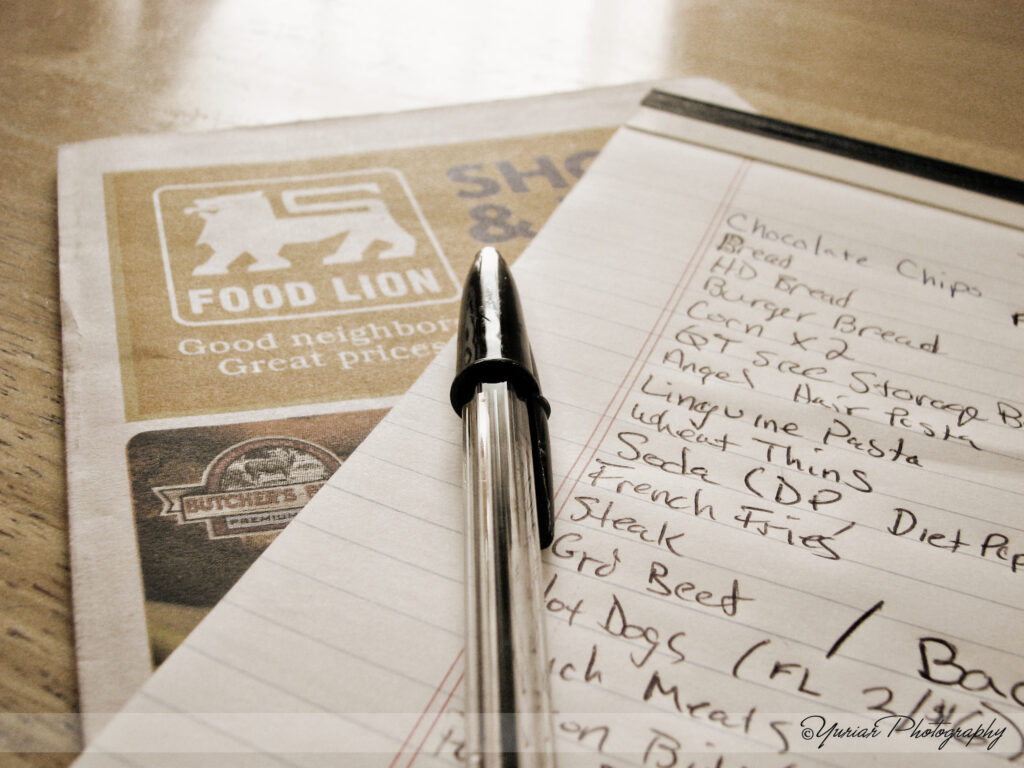 FOOD LION
Good neighbor
Great prices
SHO
&
BUTCHER'S
PREMIUM
Chocolate Chips
Bread
HD Bread
Burger Bread
Corn x 2
QT Size Storage B
Angel Hair Pasta
Linguine Pasta
Wheat Thins
Soda (DP / Diet Pep
French Fries
Steak
Grd Beef / Bac
Hot Dogs (FL 2/
ch Meats
on Bi
©Yuriar Photography